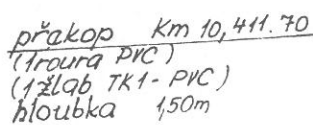 překop Km 10,411.70
(1roura PVC)
(1žlab TK1-PVC)
hloubka 1,50m